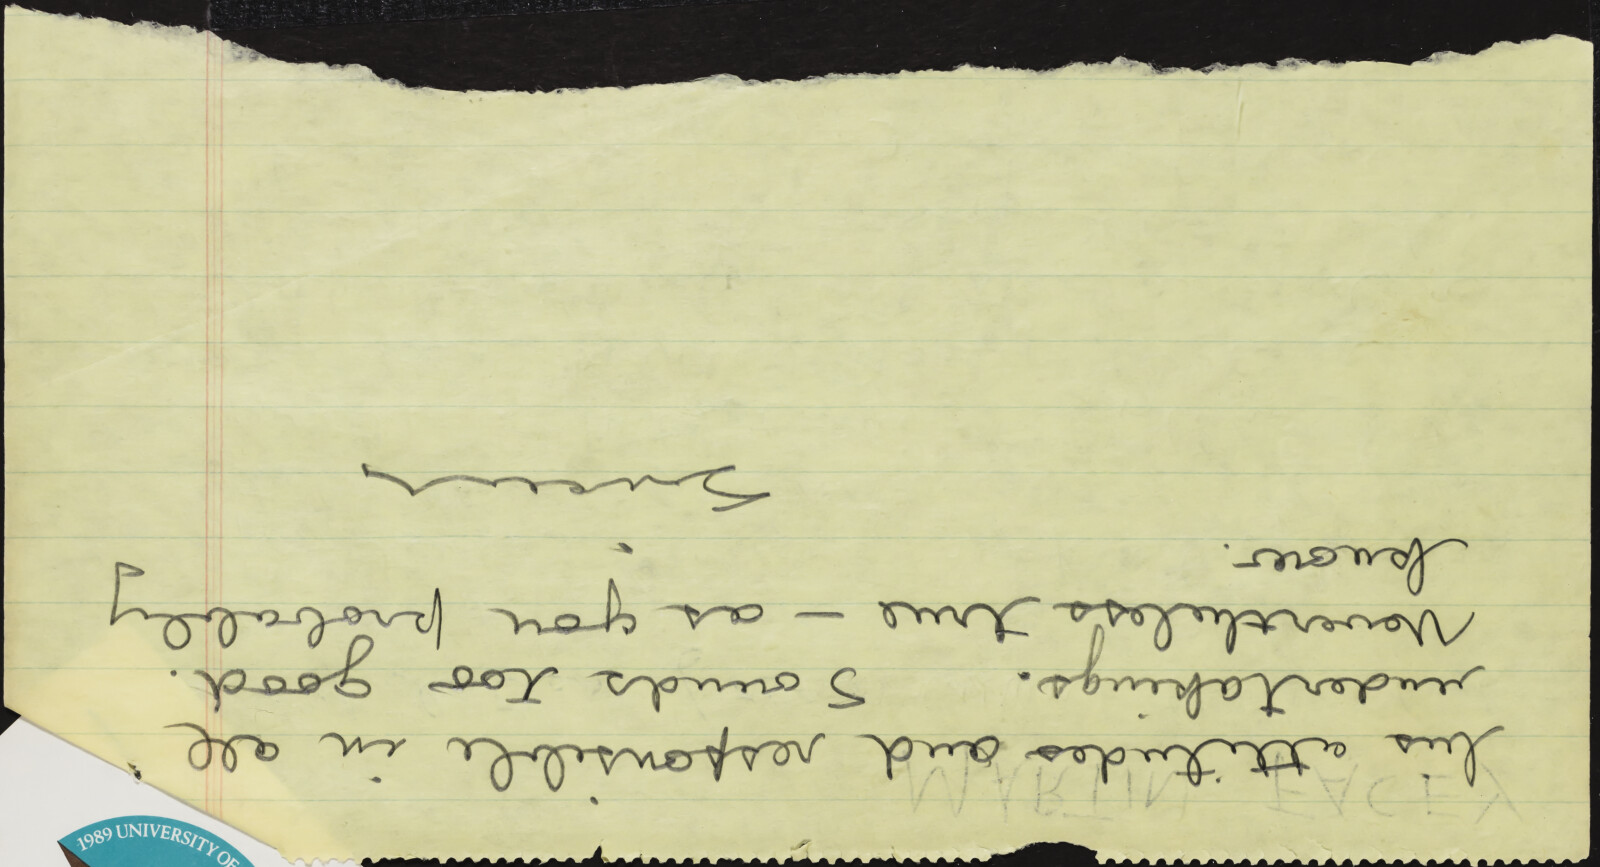 MARTIN FACEY
his attitudes and responsible in all
undertakings. Sounds too good.
Nevertheless true – as you probably
know.
1989 UNIVERSITY OF